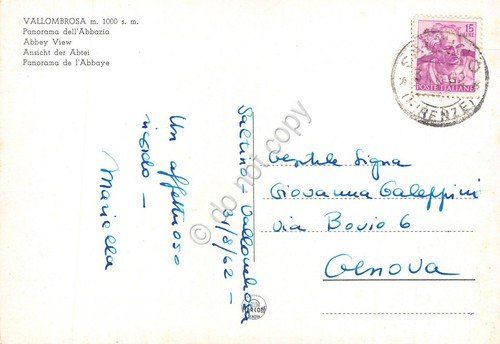 VALLOMBROSA m. 1000 s. m.
Panorama dell'Abbazia
Abbey View
Ansicht der Abtei
Panorama de l'Abbaye
15
POSTE ITALIANE
(FIRENZE)
Saltino Vallombrosa
31/8/62 -
Un affettuoso
ricordo -
Mariella
Gentile Signa
Giovanna Galeppini
Via Bovio 6
Genova
© do not copy